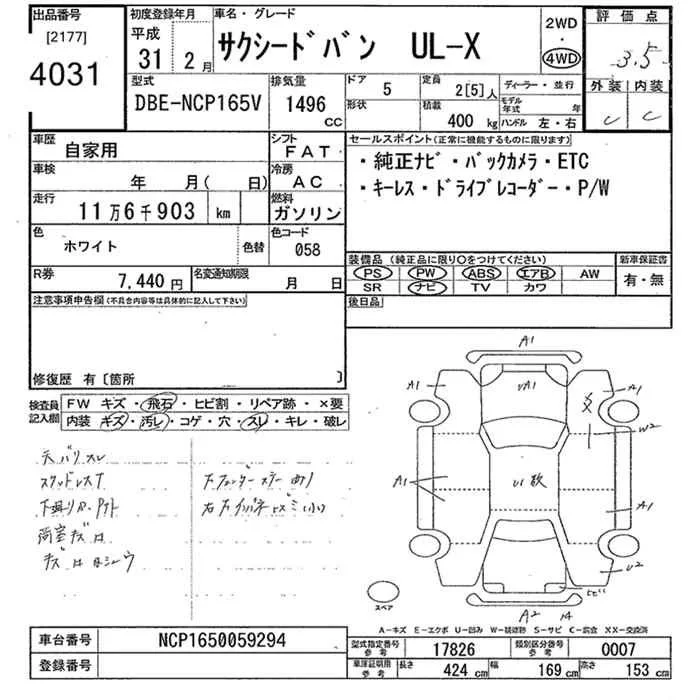 出品番号
[2177]
4031
初度登録年月
平成
31 2月
車名・グレード
サクシードバン UL-X
2WD
・
4WD
評価点
3.5
外装 内装
C C
型式
DBE-NCP165V
排気量
1496
CC
ドア
5
形状
定員
2[5]人
積載
400 kg
ディーラー・並行
モデル年式 年
ハンドル 左・右
車歴
自家用
シフト
FAT
車検
年 月( 日)
冷房
AC
走行
11万6千903 km
燃料
ガソリン
色
ホワイト
色替
色コード
058
R券
7,440円
名変通知期限
月 日
セールスポイント(正常に機能するものに限ります)
・純正ナビ・バックカメラ・ETC
・キーレス・ドライブレコーダー・P/W
装備品 (純正品に限り○をつけてください)
PS PW ABS エアB AW
SR ナビ TV カワ
新車保証書
有・無
後日品
注意事項申告欄(不具合内容等は具体的に記入して下さい)
修復歴 有〔箇所 〕
検査員記入欄
FW キズ・飛石・ヒビ割・リペア跡・×要
内装 キズ・汚レ・コゲ・穴・スレ・キレ・破レ
スタッドレスT
A1
A1
UA1
A1
W2
A1
A1
U2
ヒビ
A2
スペア
A-キズ E-エクボ U-凹み W-補修跡 S-サビ C-腐食 XX-交換済
車台番号
NCP1650059294
登録番号
型式指定番号
参考
17826
類別区分番号
参考
0007
車庫証明用
参考
長さ 424 cm 幅 169 cm 高さ 153 cm